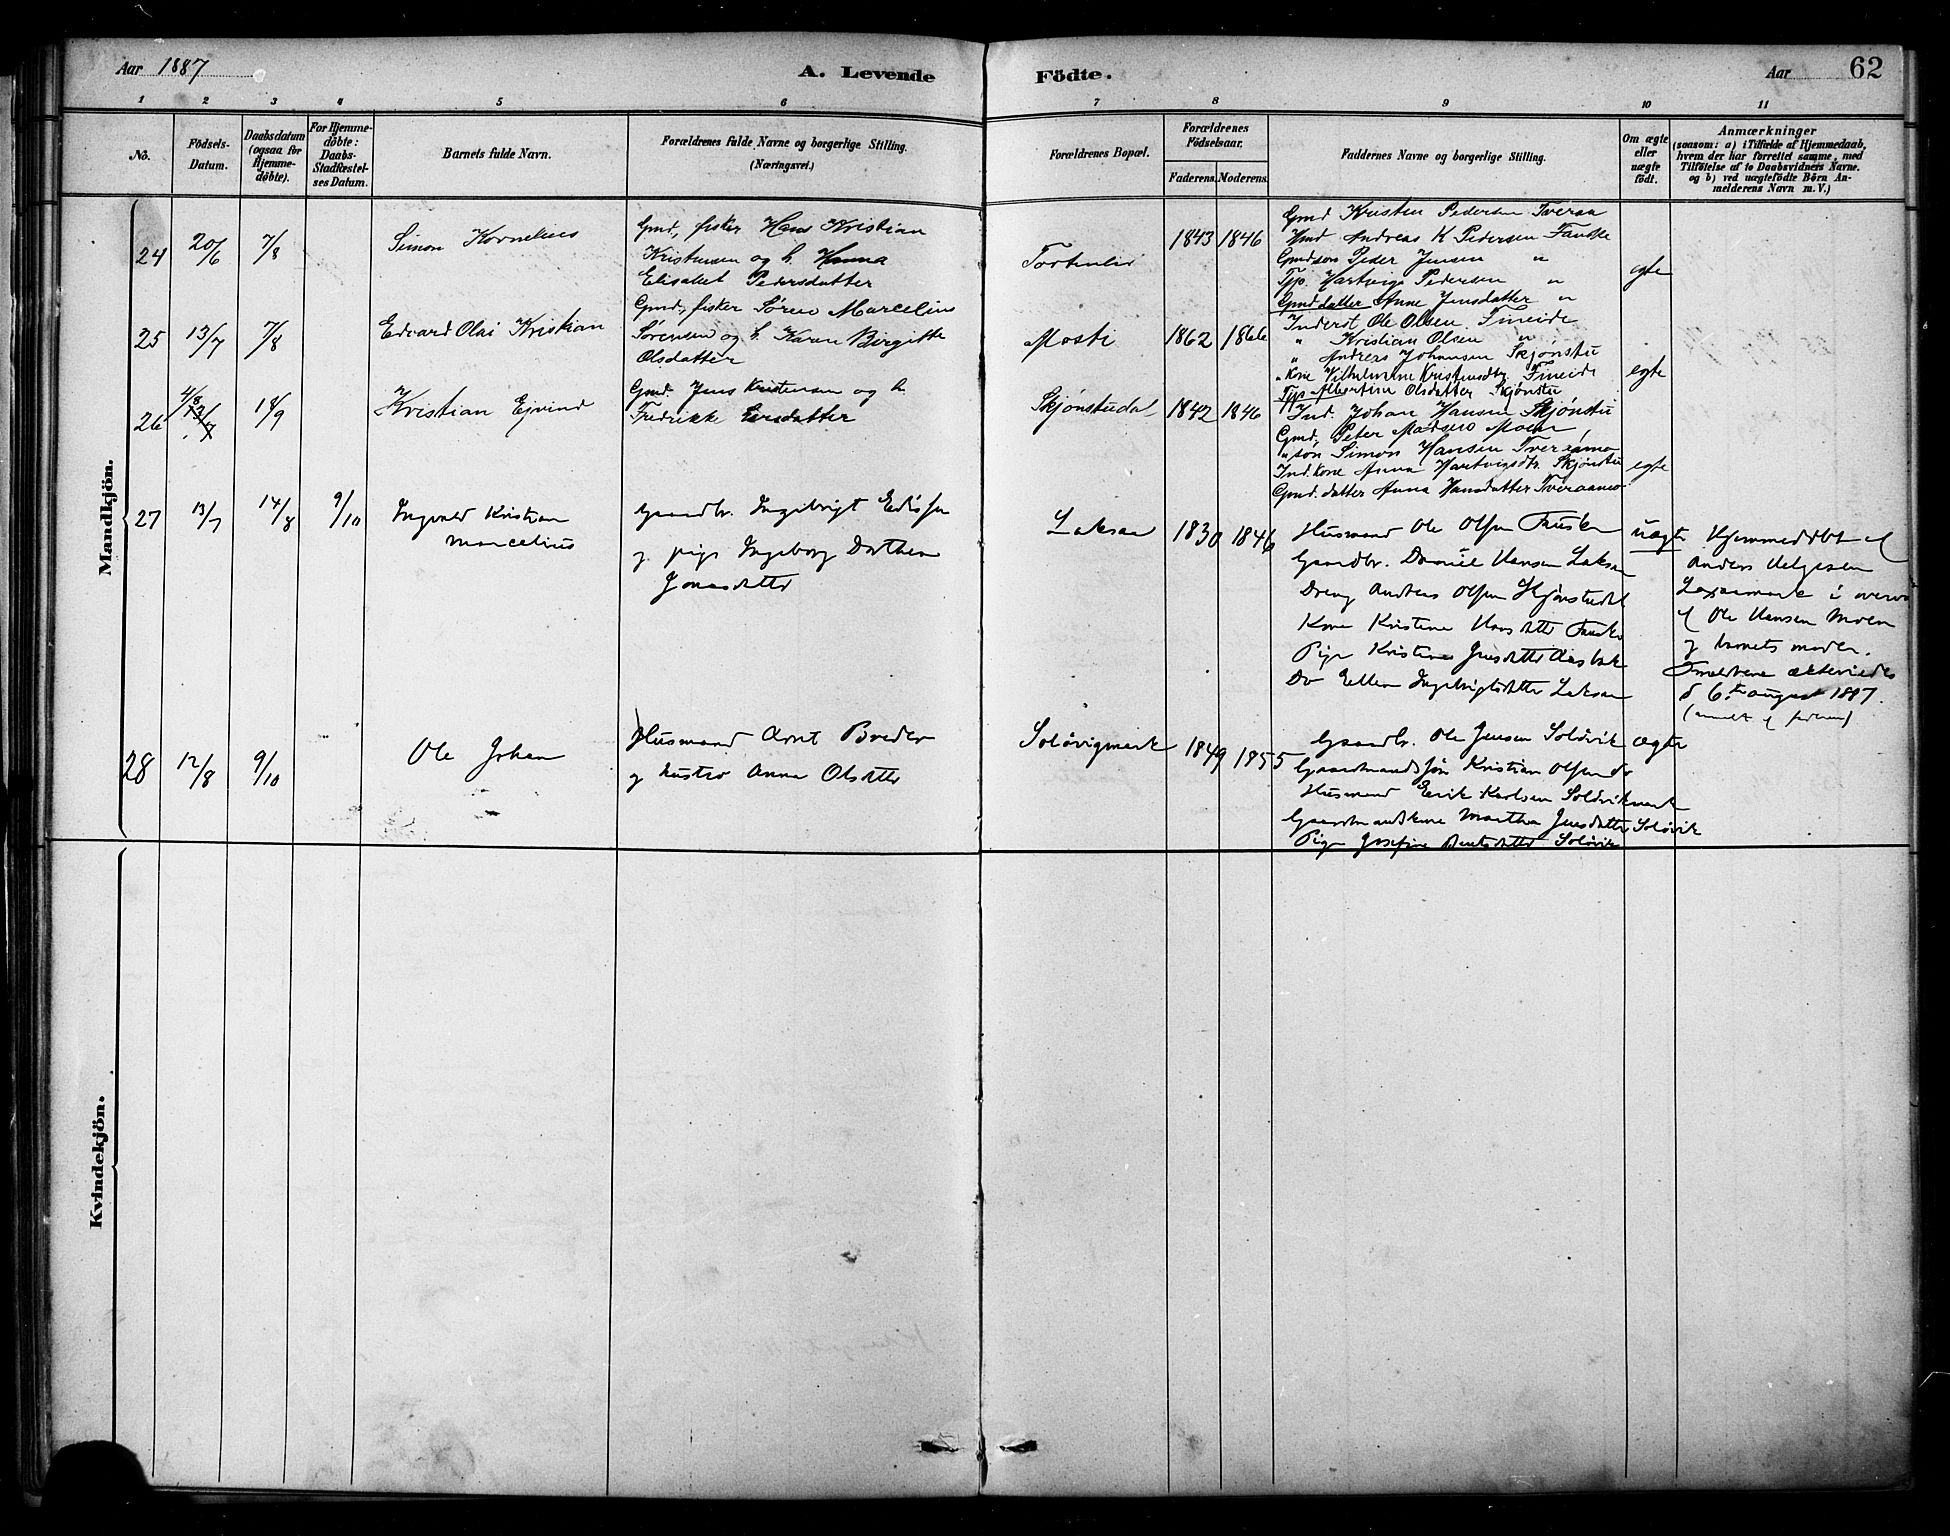 Aar 1887
A. Levende
Födte.
Aar
62
1 2 3 4 5 6 7 8 9 10 11
No.
Födsels-
Datum.
Daabsdatum
(ogsaa for
Hjemme-
döbte).
For Hjemme-
döbte:
Daabs-
Stadfæstel-
ses Datum.
Barnets fulde Navn.
Forældrenes fulde Navne og borgerlige Stilling.
(Næringsvei.)
Forældrenes Bopæl.
Forældrenes
Födselsaar.
Faderens.
Moderens.
Faddernes Navne og borgerlige Stilling.
Om ægte
eller
uægte
födt.
Anmærkninger
(saasom: a) i Tilfælde af Hjemmedaab,
hvem der har forrettet samme, med
Tilföielse af to Daabsvidners Navne.
og b) ved uægtefödte Börn An-
melderens Navn m. V.)
Mandkjön.
24
20/6
7/8
Simon Kornelius
Gmd, fisker Hans Kristian
Kristensen og h. Hanna
Elisabet Pedersdatter
1843
1846
Gmd Kristen Pedersen Tveraa
Hmd Andreas K Pedersen Fauske
Gmdsøn Peder Jensen "
Tjp. Hartviga Pedersen "
Gmd datter Anne Jensdatter "
egte
25
13/7
7/8
Edvard Olai Kristian
Gmd, fisker Søren Marcelius
Sørensen og h. Karen Birgitte
Olsdatter
Mosti
1862
1866
Inderst Ole Olsen Fineide
" Kristian Olsen "
" Andreas Johansen Skjønstu
" Kone Vilhelmine Kristensdtr Fineide
Tjp Albertine Olsdatter Skjønstu
egte
26
4/8
13/7
18/9
Kristian Ejvind
Gmd. Jens Kristensen og h.
Fredrikke Larsdatter
Skjønstudal
1842
1846
Ind. Johan Hansen Skjønstu
Gmd, Peter Madsen Moen
" søn Simon Hansen Tveraamo
Ind. kone Anna Hartvigsdtr. Skjønstu
Gmd. datter Anna Hansdatter Tveraamo
egte
27
13/7
14/8
9/10
Ingvald Kristian
Marcelius
Gaardbr. Ingebrigt
og pige Ingeborg Dorthea
Jonasdatter
Laksaa
1830
1846
Husmand Ole Olsen Fauske
Gaardbr. Daniel Hansen Laksaa
Dreng Andreas Olsen Skjønstudal
Kone Kristine Hansdatter Fauske
Pige Kristine Jensdatter
Do Ellen Ingebrigtsdatter Laksaa
uægte
Hjemmedøbt af
Anders Helgesen
Laxaamark i overv
af Ole Hansen Moen
og barnets moder.
Forældrene ægteviedes
d 6.te august 1887.
(anmeldt af faderen)
28
12/8
9/10
Ole Johan
Husmand Arnt Breder
og hustro Anna Olsdatter
Soløvigmark
1849
1855
Gaardbr. Ole Jensen Soløvik
Gaardmandssøn Kristian Olsen do
Husmand Erik Karlsen Soløvikmark
Gaardmandskone Martha Jensdatter Soløvik
Pige Josefine Bentsdatter Soløvik
ægte
Kvindekjön.